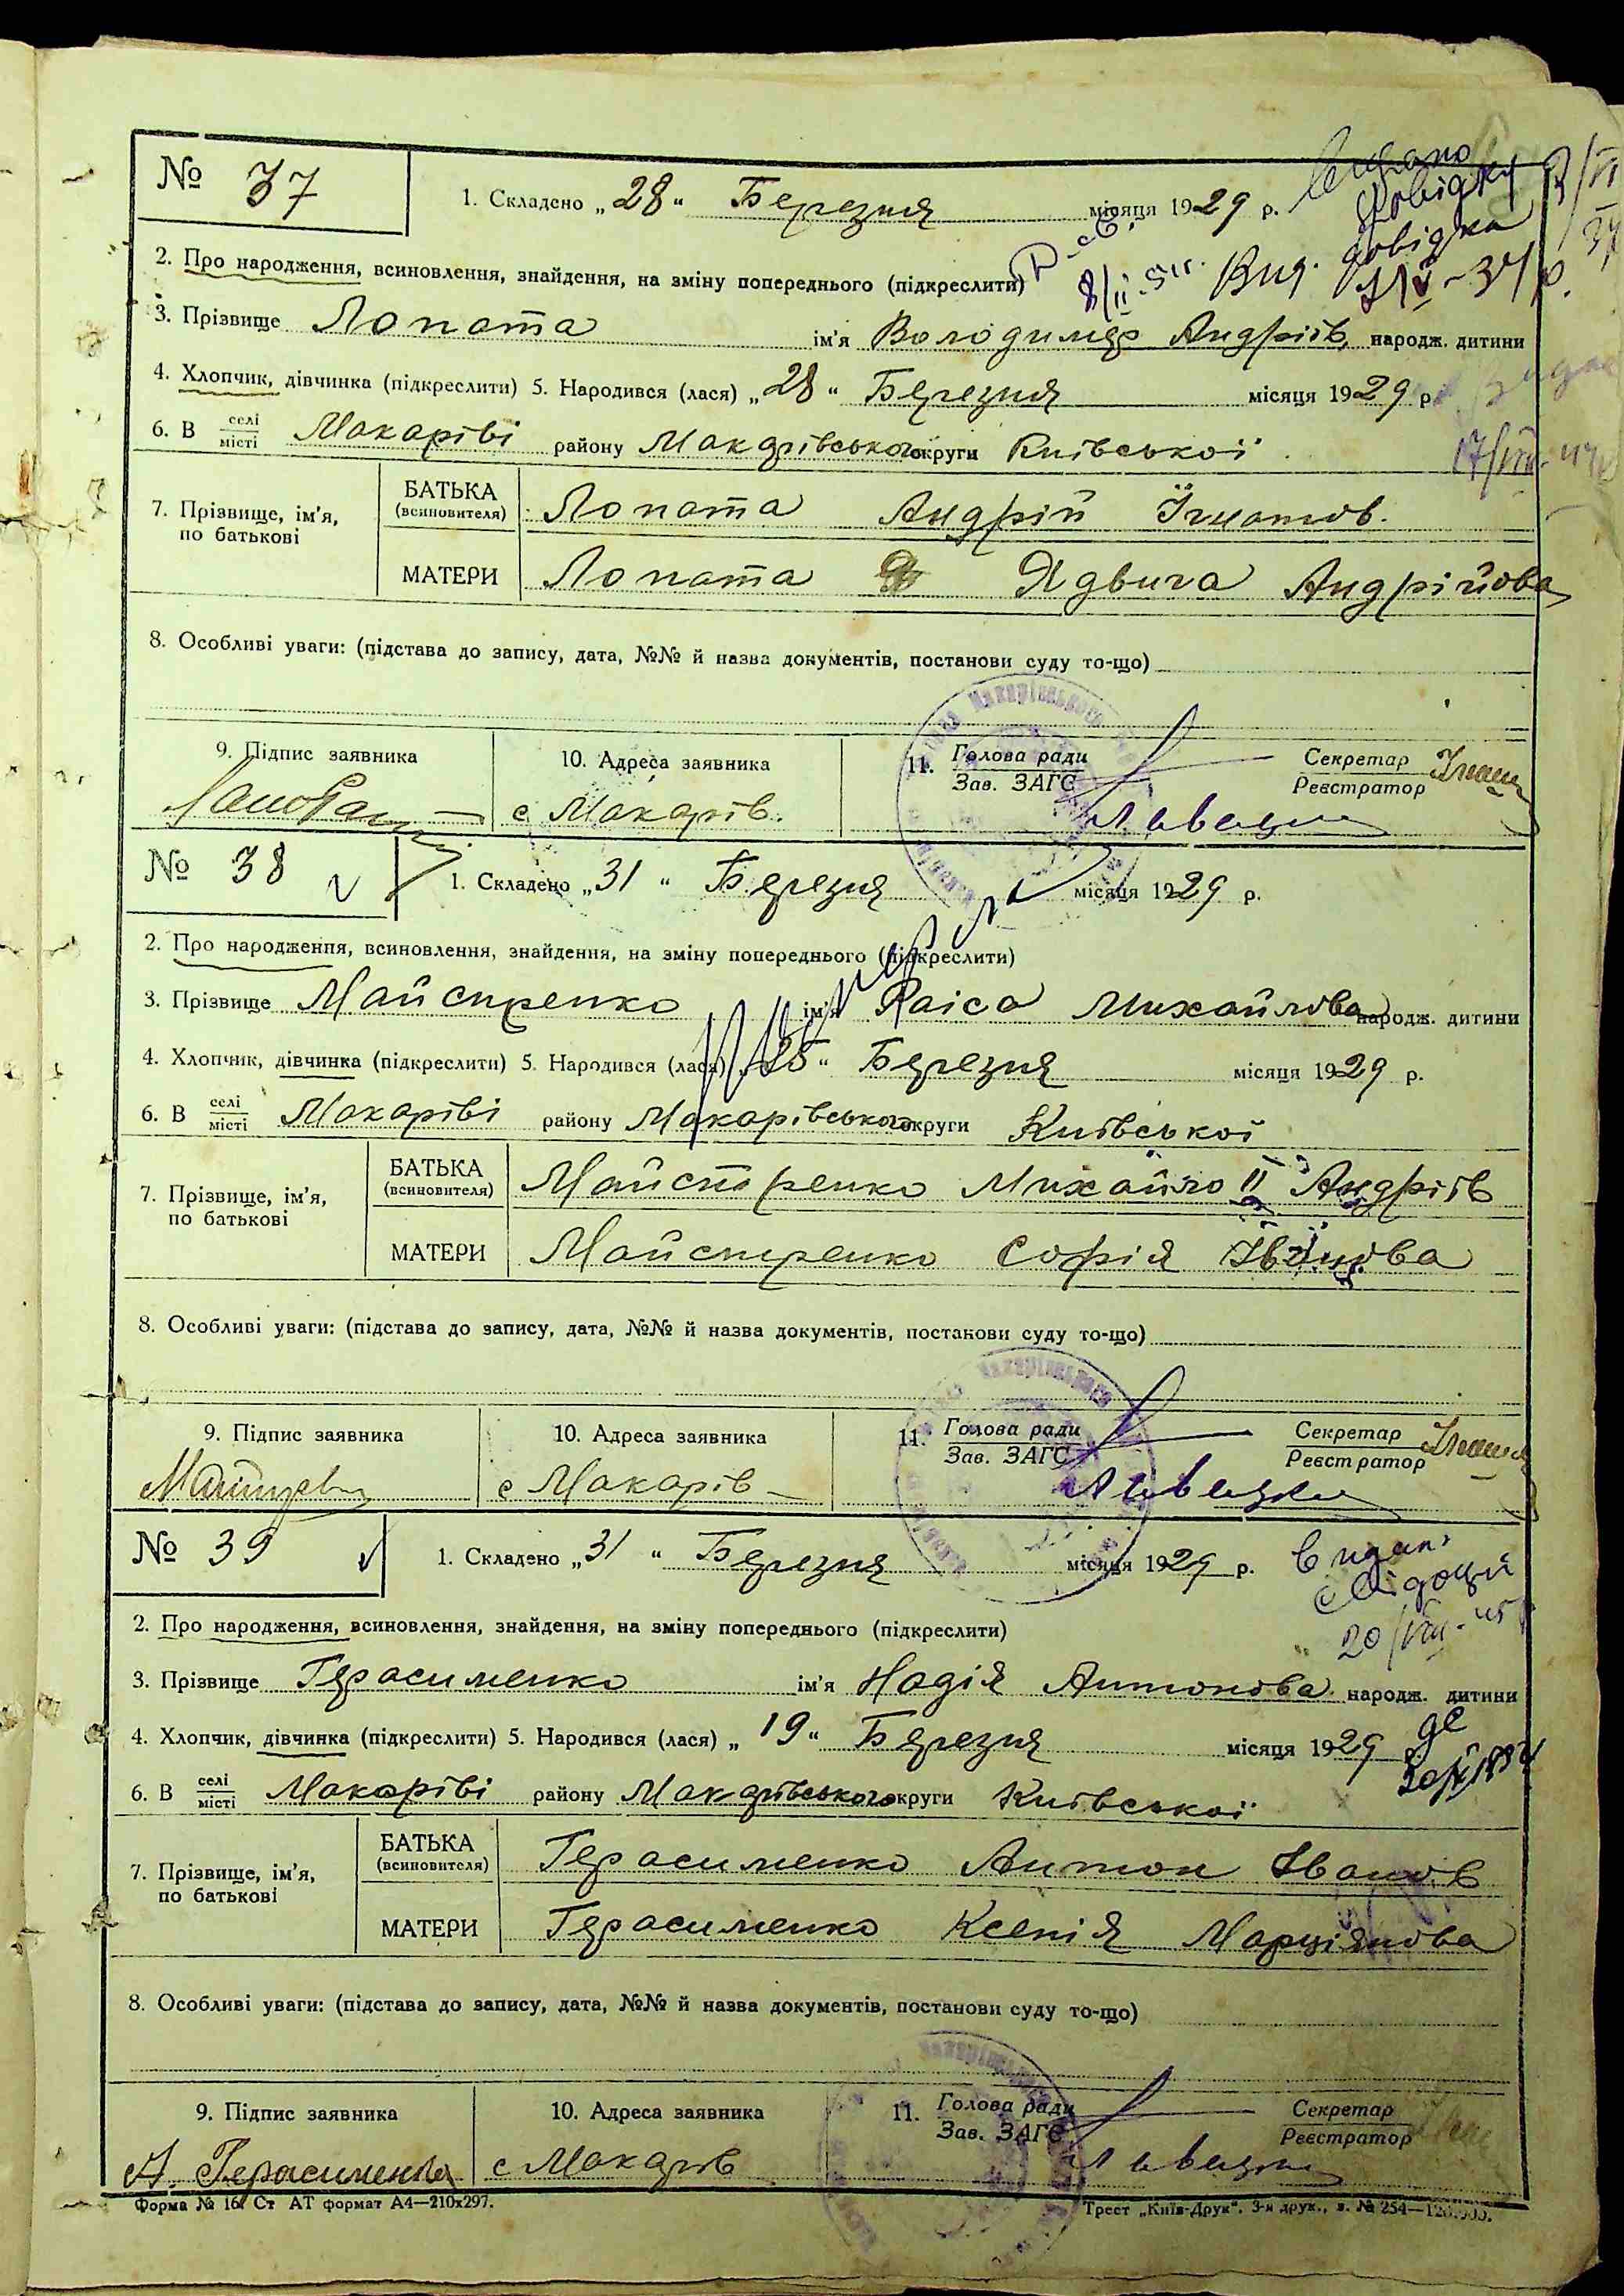 № 37
1. Складено „28“ Березня місяця 1929 р.
Видано
довідку
Вид. довідка
2. Про народження, всиновлення, знайдення, на зміну попереднього (підкреслити)
3. Прізвище Лопата ім'я Володимир Андріїв народж. дитини
4. Хлопчик, дівчинка (підкреслити) 5. Народився (лася) „28“ Березня місяця 1929 р.
6. В селі місті Макарові району Макарівського округи Київської
7. Прізвище, ім'я, по батькові
БАТЬКА (всиновителя) Лопата Андрій Ігнатов.
МАТЕРИ Лопата Ядвига Андрійова
8. Особливі уваги: (підстава до запису, дата, №№ й назва документів, постанови суду то-що)
9. Підпис заявника
10. Адреса заявника
11. Голова ради Зав. ЗАГС
Секретар Реєстратор
с Макарів.
№ 38
1. Складено „31“ Березня місяця 1929 р.
2. Про народження, всиновлення, знайдення, на зміну попереднього (підкреслити)
3. Прізвище Майстренко ім'я Раіса Михайлова народж. дитини
4. Хлопчик, дівчинка (підкреслити) 5. Народився (лася) „25“ Березня місяця 1929 р.
6. В селі місті Макарові району Макарівського округи Київської
7. Прізвище, ім'я, по батькові
БАТЬКА (всиновителя) Майстренко Михайло II Андріїв
МАТЕРИ Майстренко Софія Іванова
8. Особливі уваги: (підстава до запису, дата, №№ й назва документів, постанови суду то-що)
9. Підпис заявника
10. Адреса заявника
11. Голова ради Зав. ЗАГС
Секретар Реєстратор
с Макарів
№ 39
1. Складено „31“ Березня місяця 1929 р.
2. Про народження, всиновлення, знайдення, на зміну попереднього (підкреслити)
3. Прізвище Герасименко ім'я Надія Антонова народж. дитини
4. Хлопчик, дівчинка (підкреслити) 5. Народився (лася) „19“ Березня місяця 1929
6. В селі місті Макарові району Макарівського округи Київської
7. Прізвище, ім'я, по батькові
БАТЬКА (всиновителя) Герасименко Антон Іванов
МАТЕРИ Герасименко Ксенія Марціянова
8. Особливі уваги: (підстава до запису, дата, №№ й назва документів, постанови суду то-що)
9. Підпис заявника
10. Адреса заявника
11. Голова ради Зав. ЗАГС
Секретар Реєстратор
А. Герасименко
с Макарів
Форма № 16. Ст АТ формат А4—210х297.
Трест „Київ-Друк“. 3-я друк., з. № 254—